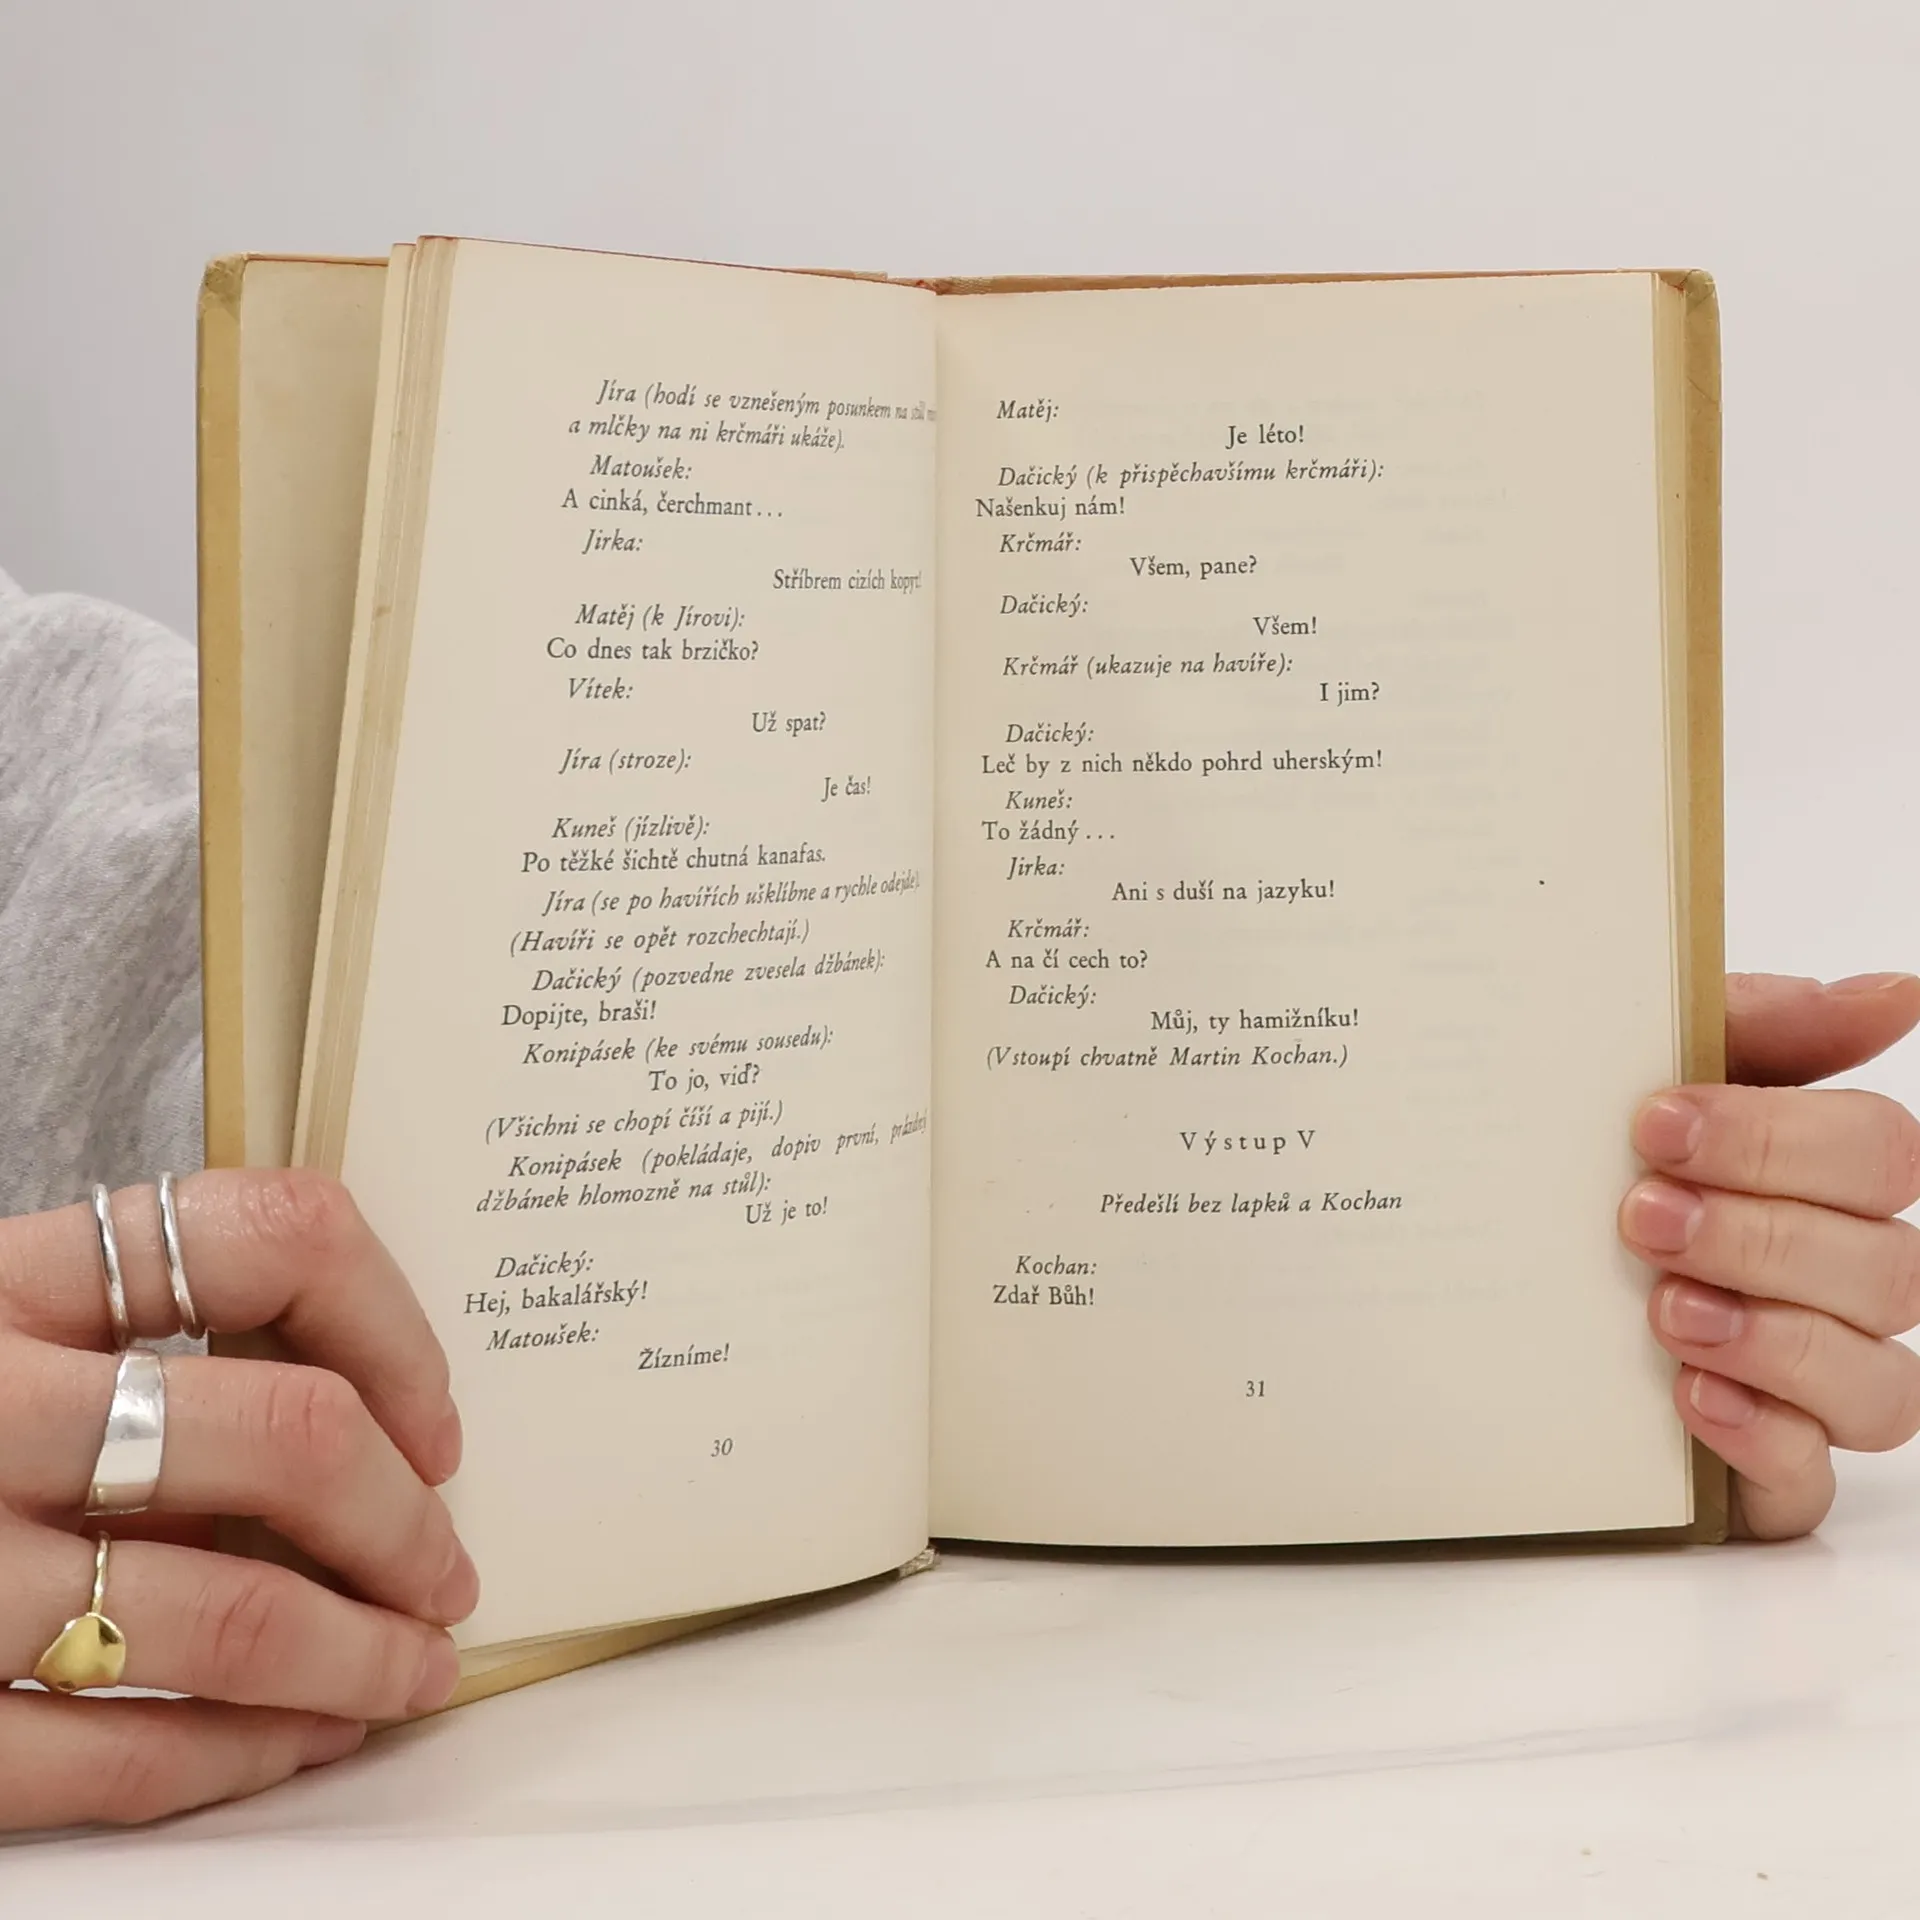 Jíra (hodí se vznešeným posunkem na stůl
a mlčky na ni krčmáři ukáže).
Matoušek:
A cinká, čerchmant...
Jirka:
Stříbrem cizích kopyt!
Matěj (k Jírovi):
Co dnes tak brzičko?
Vítek:
Už spat?
Jíra (stroze):
Je čas!
Kuneš (jízlivě):
Po těžké šichtě chutná kanafas.
Jíra (se po havířích ušklíbne a rychle odejde).
(Havíři se opět rozchechtají.)
Dačický (pozvedne zvesela džbánek):
Dopijte, braši!
Konipásek (ke svému sousedu):
To jo, viď?
(Všichni se chopí číší a pijí.)
Konipásek (pokládaje, dopiv první, prázdný
džbánek hlomozně na stůl):
Už je to!
Dačický:
Hej, bakalářský!
Matoušek:
Žízníme!
30
Matěj:
Je léto!
Dačický (k přispěchavšímu krčmáři):
Našenkuj nám!
Krčmář:
Všem, pane?
Dačický:
Všem!
Krčmář (ukazuje na havíře):
I jim?
Dačický:
Leč by z nich někdo pohrd uherským!
Kuneš:
To žádný...
Jirka:
Ani s duší na jazyku!
Krčmář:
A na čí cech to?
Dačický:
Můj, ty hamižníku!
(Vstoupí chvatně Martin Kochan.)
Výstup V
Předešlí bez lapků a Kochan
Kochan:
Zdař Bůh!
31